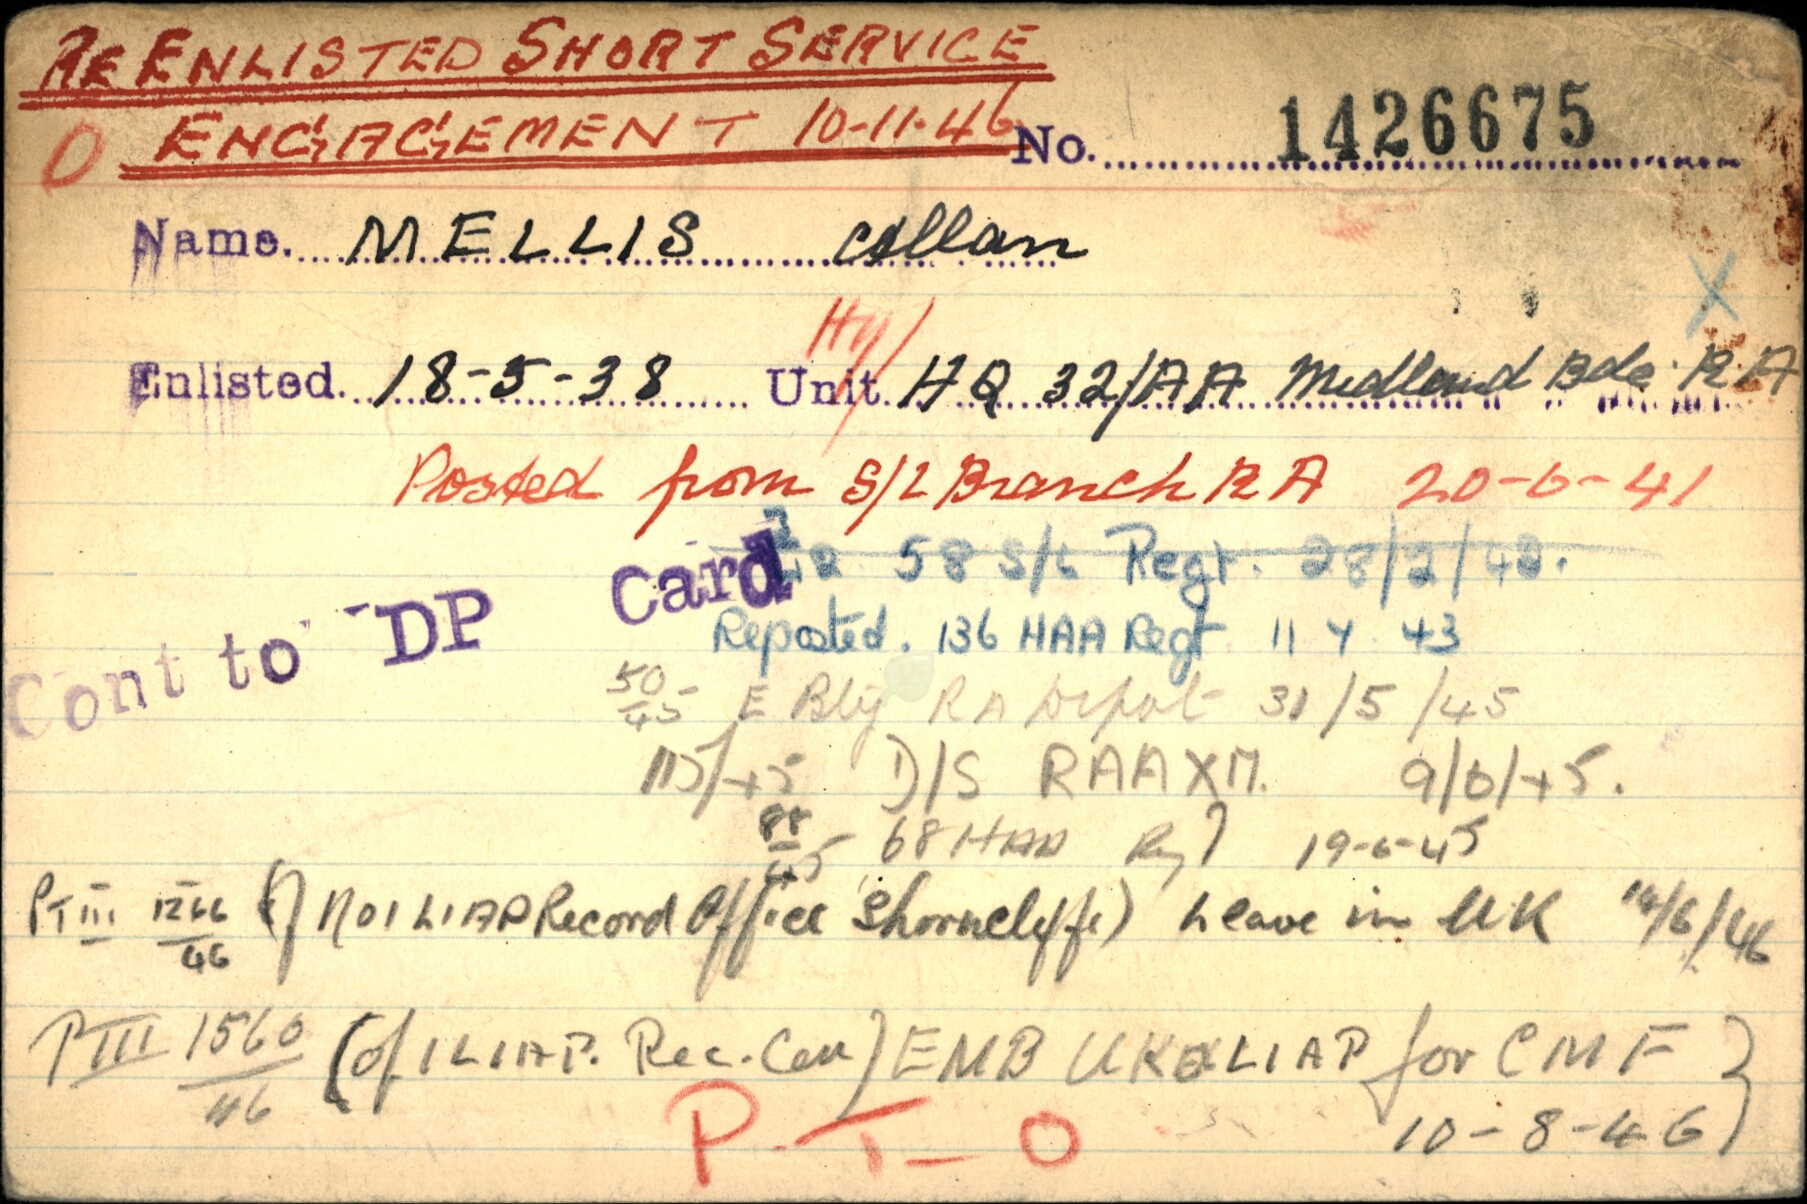 RE ENLISTED SHORT SERVICE
O ENGAGEMENT 10-11-46
No. 1426675
Name. MELLIS Allan
X
Hy/
Enlisted. 18-5-38 Unit HQ 32/AA Midland Bde R.A
Posted from S/L Branch R A 20-6-41
58 S/L Regt. 28/2/42.
Cont to DP Card
Reposted. 136 HAA Regt 11 4 43
50/45 E Bty RA Depot 31/5/45
115/45 D/S RAAXM. 9/6/45.
88/45 68 HAA Rgt 19-6-45
PT III 1266/46 (Of No 1 LIAP Record Office Shorncliffe) Leave in UK 14/6/46
PT III 1560/46 (Of 1 LIAP. Rec. Cen) EMB UK LIAP for CMF }
10-8-46
P-T-O